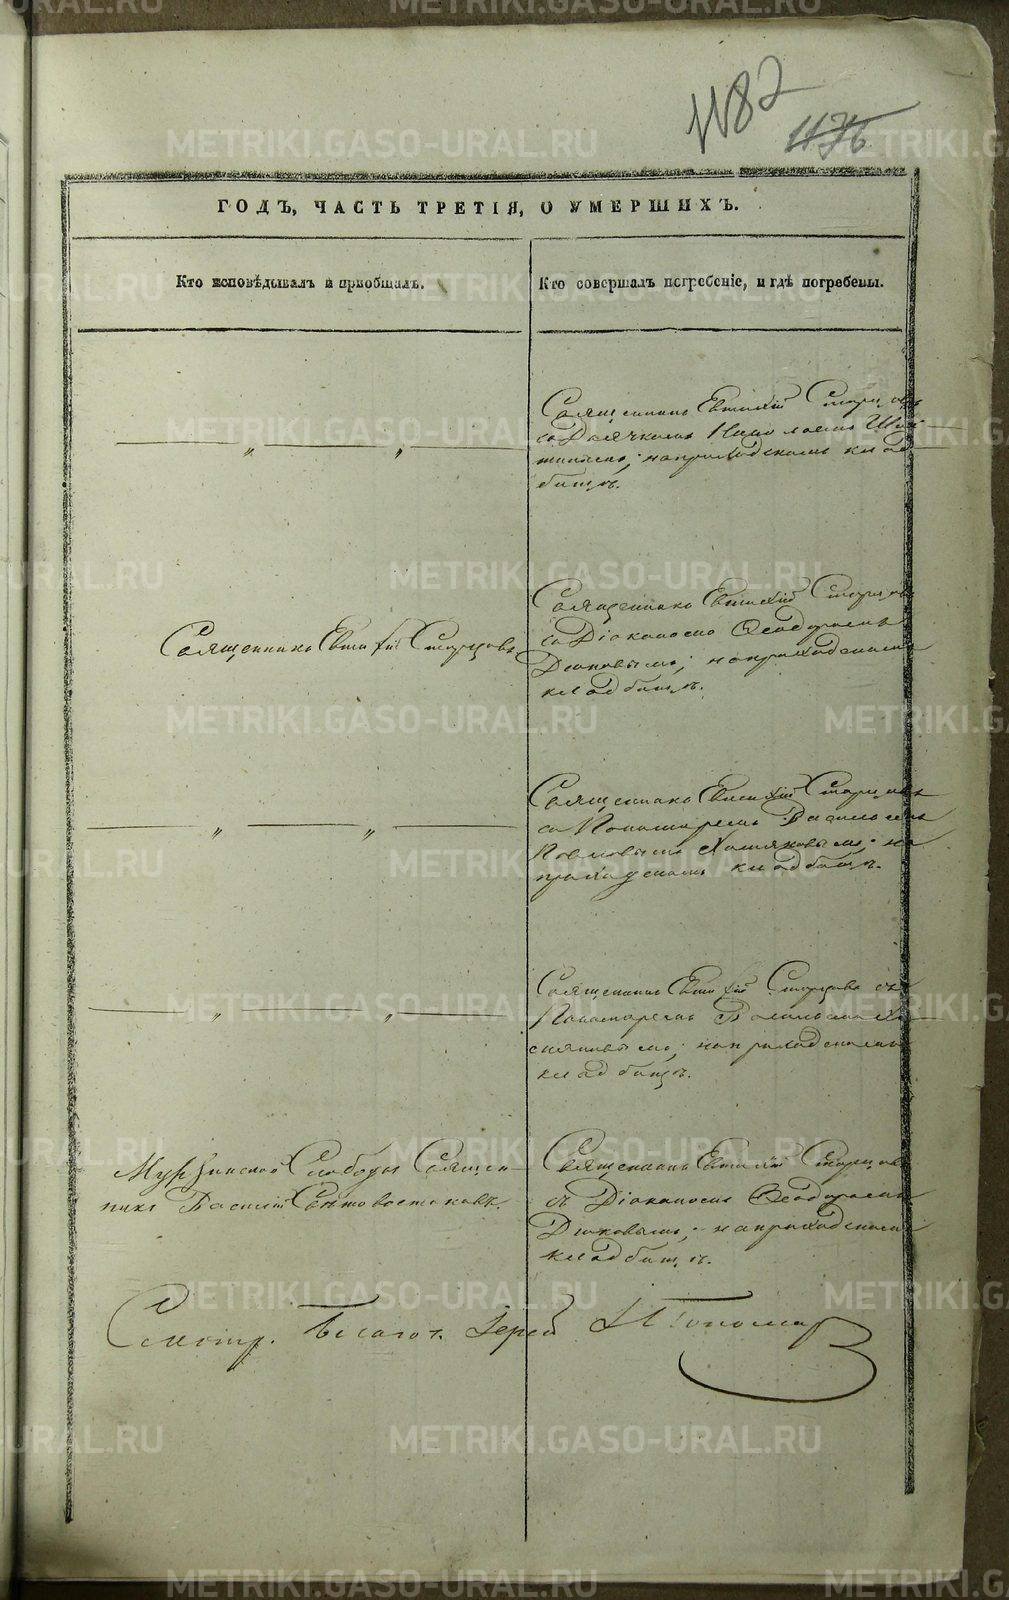 1182
1176
ГОДЪ, ЧАСТЬ ТРЕТІЯ, О УМЕРШИХЪ.
Кто исповѣдывалъ и пріобщалъ.
Кто совершалъ погребеніе, и гдѣ погребены.
Священникъ Евтихій Старцовъ
съ Дьячкомъ Николаемъ
на приходскомъ клад
бищѣ.
Священникъ Евтихій Старцовъ
Священникъ Евтихій Старцовъ
съ Діакономъ Ѳеодоромъ
Дюковымъ; на приходскомъ
кладбищѣ.
Священникъ Евтихій Старцовъ
съ Пономаремъ Василіемъ
Хомяковымъ; на
приходскомъ кладбищѣ.
Священникъ Евтихій Старцовъ съ
Пономаремъ Василіемъ Хо
мяковымъ; на приходскомъ
кладбищѣ.
Мурзинской Слободы Священ
никъ Василій
Священникъ Евтихій Старцовъ
съ Діакономъ Ѳеодоромъ
Дюковымъ; на приходскомъ
кладбищѣ.
Смотр. Благоч. Іерей Пономар
METRIKI.GASO-URAL.RU